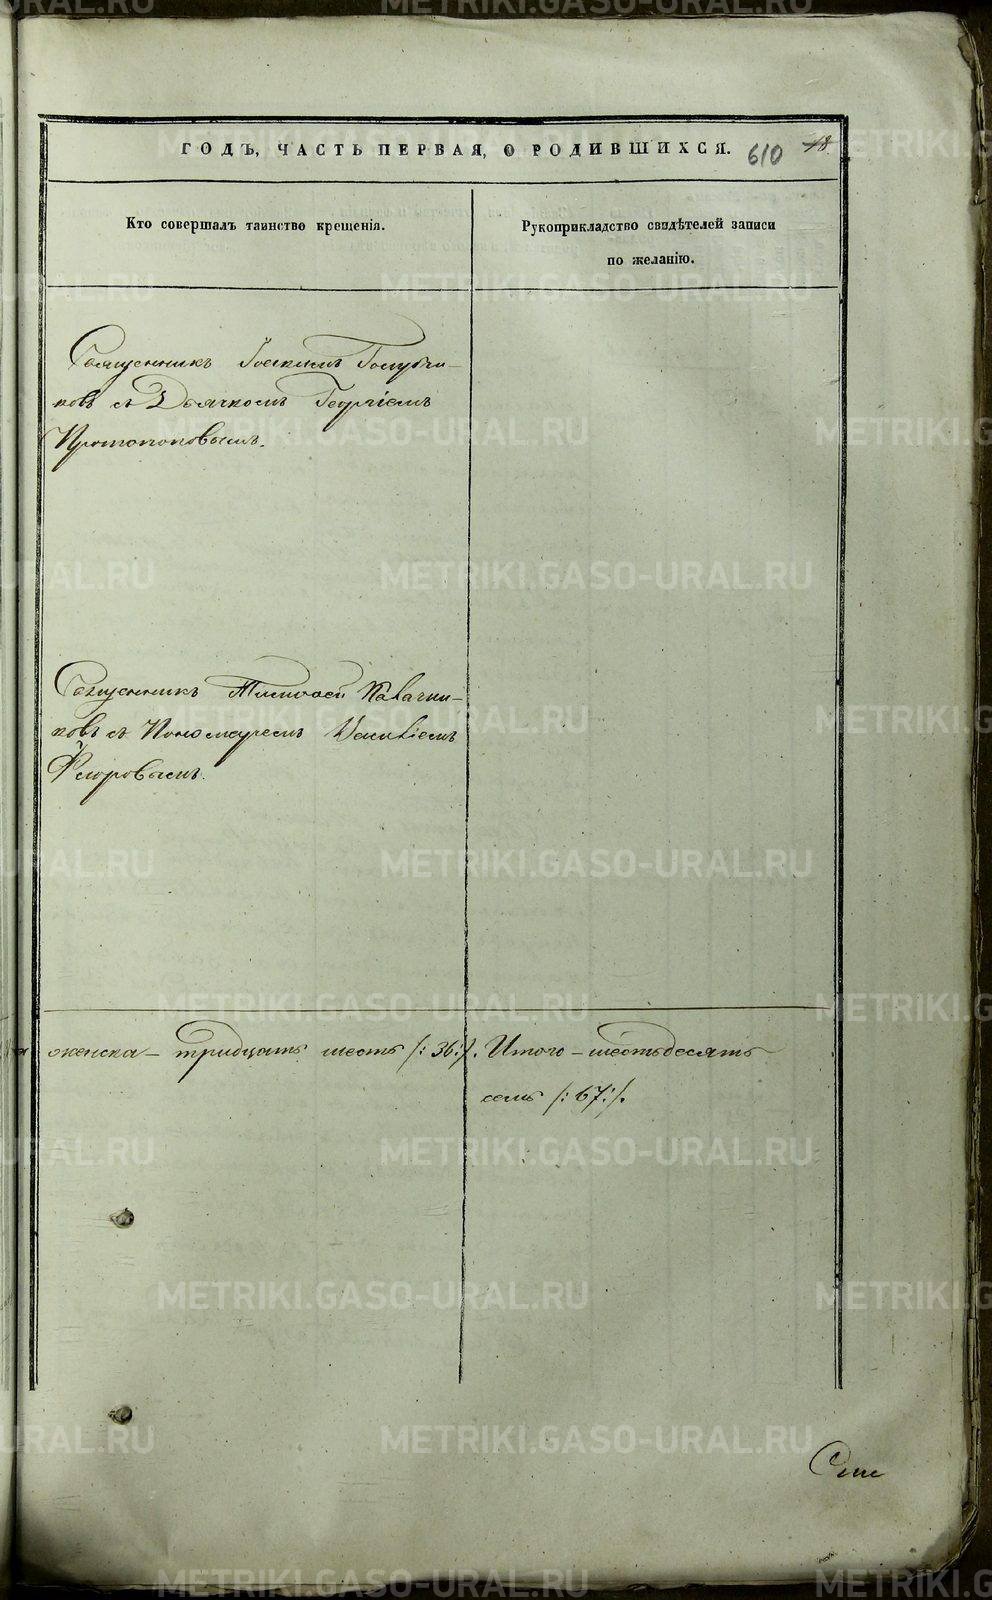 ГОДЪ, ЧАСТЬ ПЕРВАЯ, О РОДИВШИХСЯ. 610 18.
Кто совершалъ таинство крещенія.
Рукоприкладство свидѣтелей записи
по желанію.
Священникъ Іоакимъ Голубчи-
ковъ съ Дьячкомъ Георгіемъ
Протопоповымъ.
Священникъ Тимофей
ковъ съ Пономаремъ Василіемъ
Флоровымъ.
женска – тридцать шесть /:36:/. Итого – шестьдесятъ
семь /:67:/.
METRIKI.GASO-URAL.RU